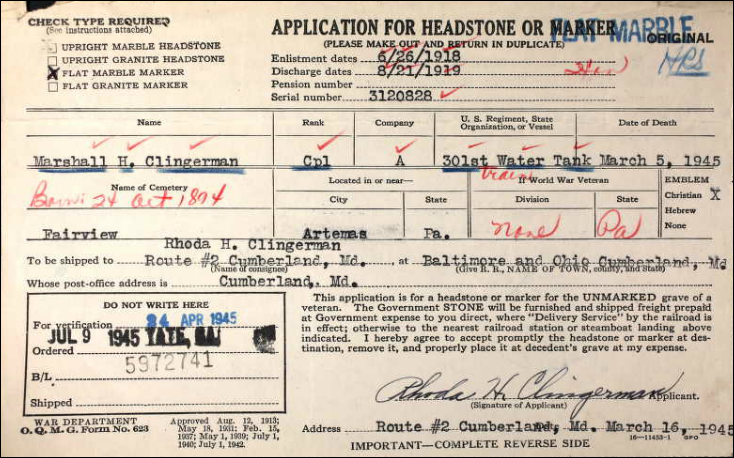 CHECK TYPE REQUIRED
(See instructions attached)
UPRIGHT MARBLE HEADSTONE
UPRIGHT GRANITE HEADSTONE
X FLAT MARBLE MARKER
FLAT GRANITE MARKER
APPLICATION FOR HEADSTONE OR MARKER
FLAT MARBLE
(PLEASE MAKE OUT AND RETURN IN DUPLICATE)
ORIGINAL
Enlistment dates 6/26/1918
Discharge dates 8/21/1919
Pension number
Serial number 3120828
Name Rank Company U. S. Regiment, State Organization, or Vessel Date of Death
Marshall H. Clingerman Cpl A 301st Water Tank March 5, 1945
Train
Name of Cemetery Located in or near— If World War Veteran EMBLEM
City State Division State
Christian X
Hebrew
None
Born 24 Oct 1894
None Pa
Fairview Artemas Pa.
Rhoda H. Clingerman
To be shipped to Route #2 Cumberland, Md. at Baltimore and Ohio Cumberland, Md
(Name of consignee) (Give R. R., NAME OF TOWN, county, and State)
Whose post-office address is Cumberland, Md.
DO NOT WRITE HERE
For verification 24 APR 1945
JUL 9 1945
Ordered
5972741
B/L
Shipped
This application is for a headstone or marker for the UNMARKED grave of a
veteran. The Government STONE will be furnished and shipped freight prepaid
at Government expense to you direct, where "Delivery Service" by the railroad is
in effect; otherwise to the nearest railroad station or steamboat landing above
indicated. I hereby agree to accept promptly the headstone or marker at des-
tination, remove it, and properly place it at decedent's grave at my expense.
Rhoda H. Clingerman Applicant.
(Signature of Applicant)
WAR DEPARTMENT
O. Q. M. G. Form No. 623
Approved Aug. 12, 1913;
May 18, 1931; Feb. 15,
1937; May 1, 1939; July 1,
1940; July 1, 1942.
Address Route #2 Cumberland, Md. March 16, 1945
16—11453-1 GPO
IMPORTANT—COMPLETE REVERSE SIDE